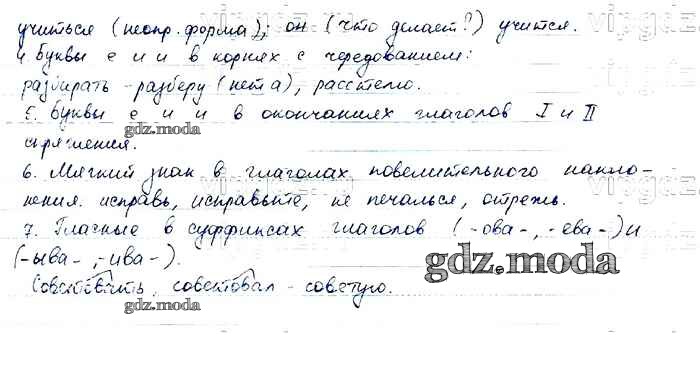 учиться (неопр. форма); он (что делает?) учится.
4 буквы е и и в корнях с чередованием:
разбирать - разберу (нет а), расстелю.
5. Буквы е и и в окончаниях глаголов I и II
gdz.moda
спряжения.
6. Мягкий знак в глаголах повелительного накло-
нения. исправь, исправьте, не печалься, отрежь.
gdz.moda
7. Гласные в суффиксах глаголов (-ова-, -ева-) и
(-ыва-, -ива-).
gdz.moda
Советовать, советовал - советую.
gdz.moda
gdz.moda